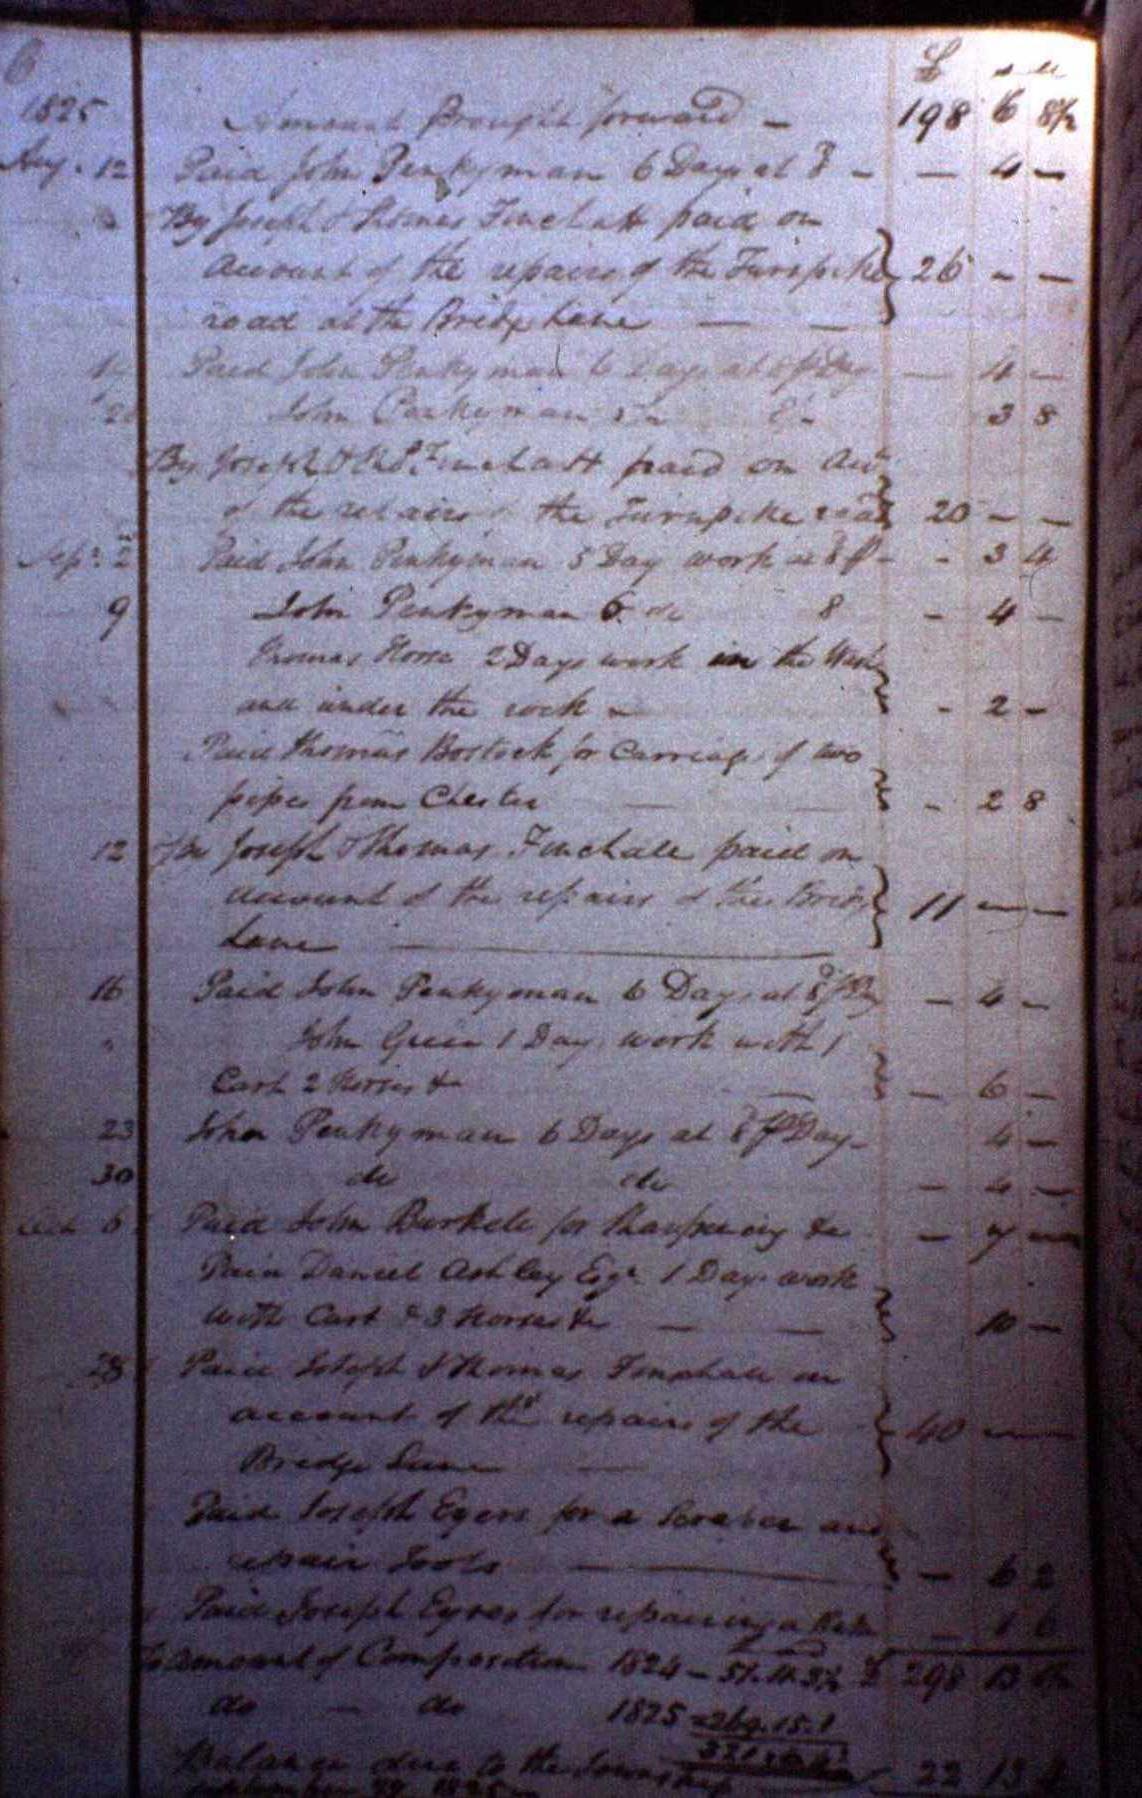 6
£ s d
1825 Amount Brought forward - 198 6 8½
Aug. 12 Paid John Penkyman 6 Days at 8 - - 4 -
By Joseph & Thomas Finchatt paid on
account of the repairs of the Turnpike 26 - -
road at the Bridge Lane
Paid John Penkyman 6 Days at 8 pr Day - 4 -
20 John Penkyman 3 8
By Joseph & Finchatt paid on Act
of the repairs of the Turnpike road 20 - -
Sep. 2 Paid John Penkyman 5 Day work at 8 p - - 3 4
9 John Penkyman 6 do 8 - 4 -
Thomas 2 Days work in the
and under the rock - - 2 -
Paid Thomas Bostock for Carriage of two
pipes from Chester - 2 8
12 Joseph & Thomas Finchate paid on
account of the repairs of the Bridge 11 - -
Lane
16 Paid John Penkyman 6 Days at 8 pr Day - 4 -
John Green 1 Day work with 1
Cart 2 Horses &c - 6 -
23 John Penkyman 6 Days at 8 pr Day - 4 -
30 do do - 4 -
6 Paid John for &c - 7 -
Paid Daniel Ashley Esqr. 1 Days work
with Cart & 3 Horses &c 10 -
28 Paid Joseph & Thomas on
account of the repairs of the 40 - -
Bridge Lane
Paid Joseph for a Scraper and
repair Tools - 6 2
Paid Joseph Eyres for repairing a - 1
To Amount of Composition 1824 - £ 298 13
do - do 1825 - 269.15.1
Balance due to the Township 22 13
September 29 1825